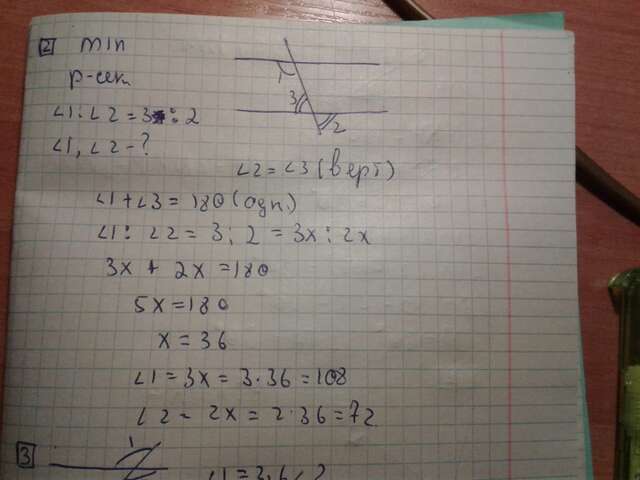 2 m||n
p-сек.
∠1:∠2=3:2
∠1, ∠2-?
1
3
2
∠2=∠3(верт)
∠1+∠3=180(одн.)
∠1: ∠2=3:2=3x:2x
3x+2x=180
5x=180
x=36
∠1=3x=3·36=108
∠2=2x=2·36=72
3
1